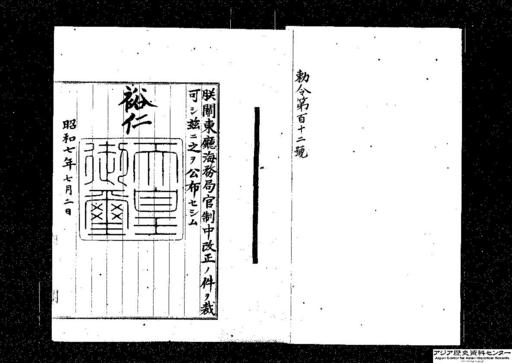 勅令第百十二號
朕關東廳海務局官制中改正ノ件ヲ裁
可シ茲ニ之ヲ公布セシム
裕仁
天皇
御璽
昭和七年七月二日
アジア歴史資料センター
Japan Center for Asian Historical Records